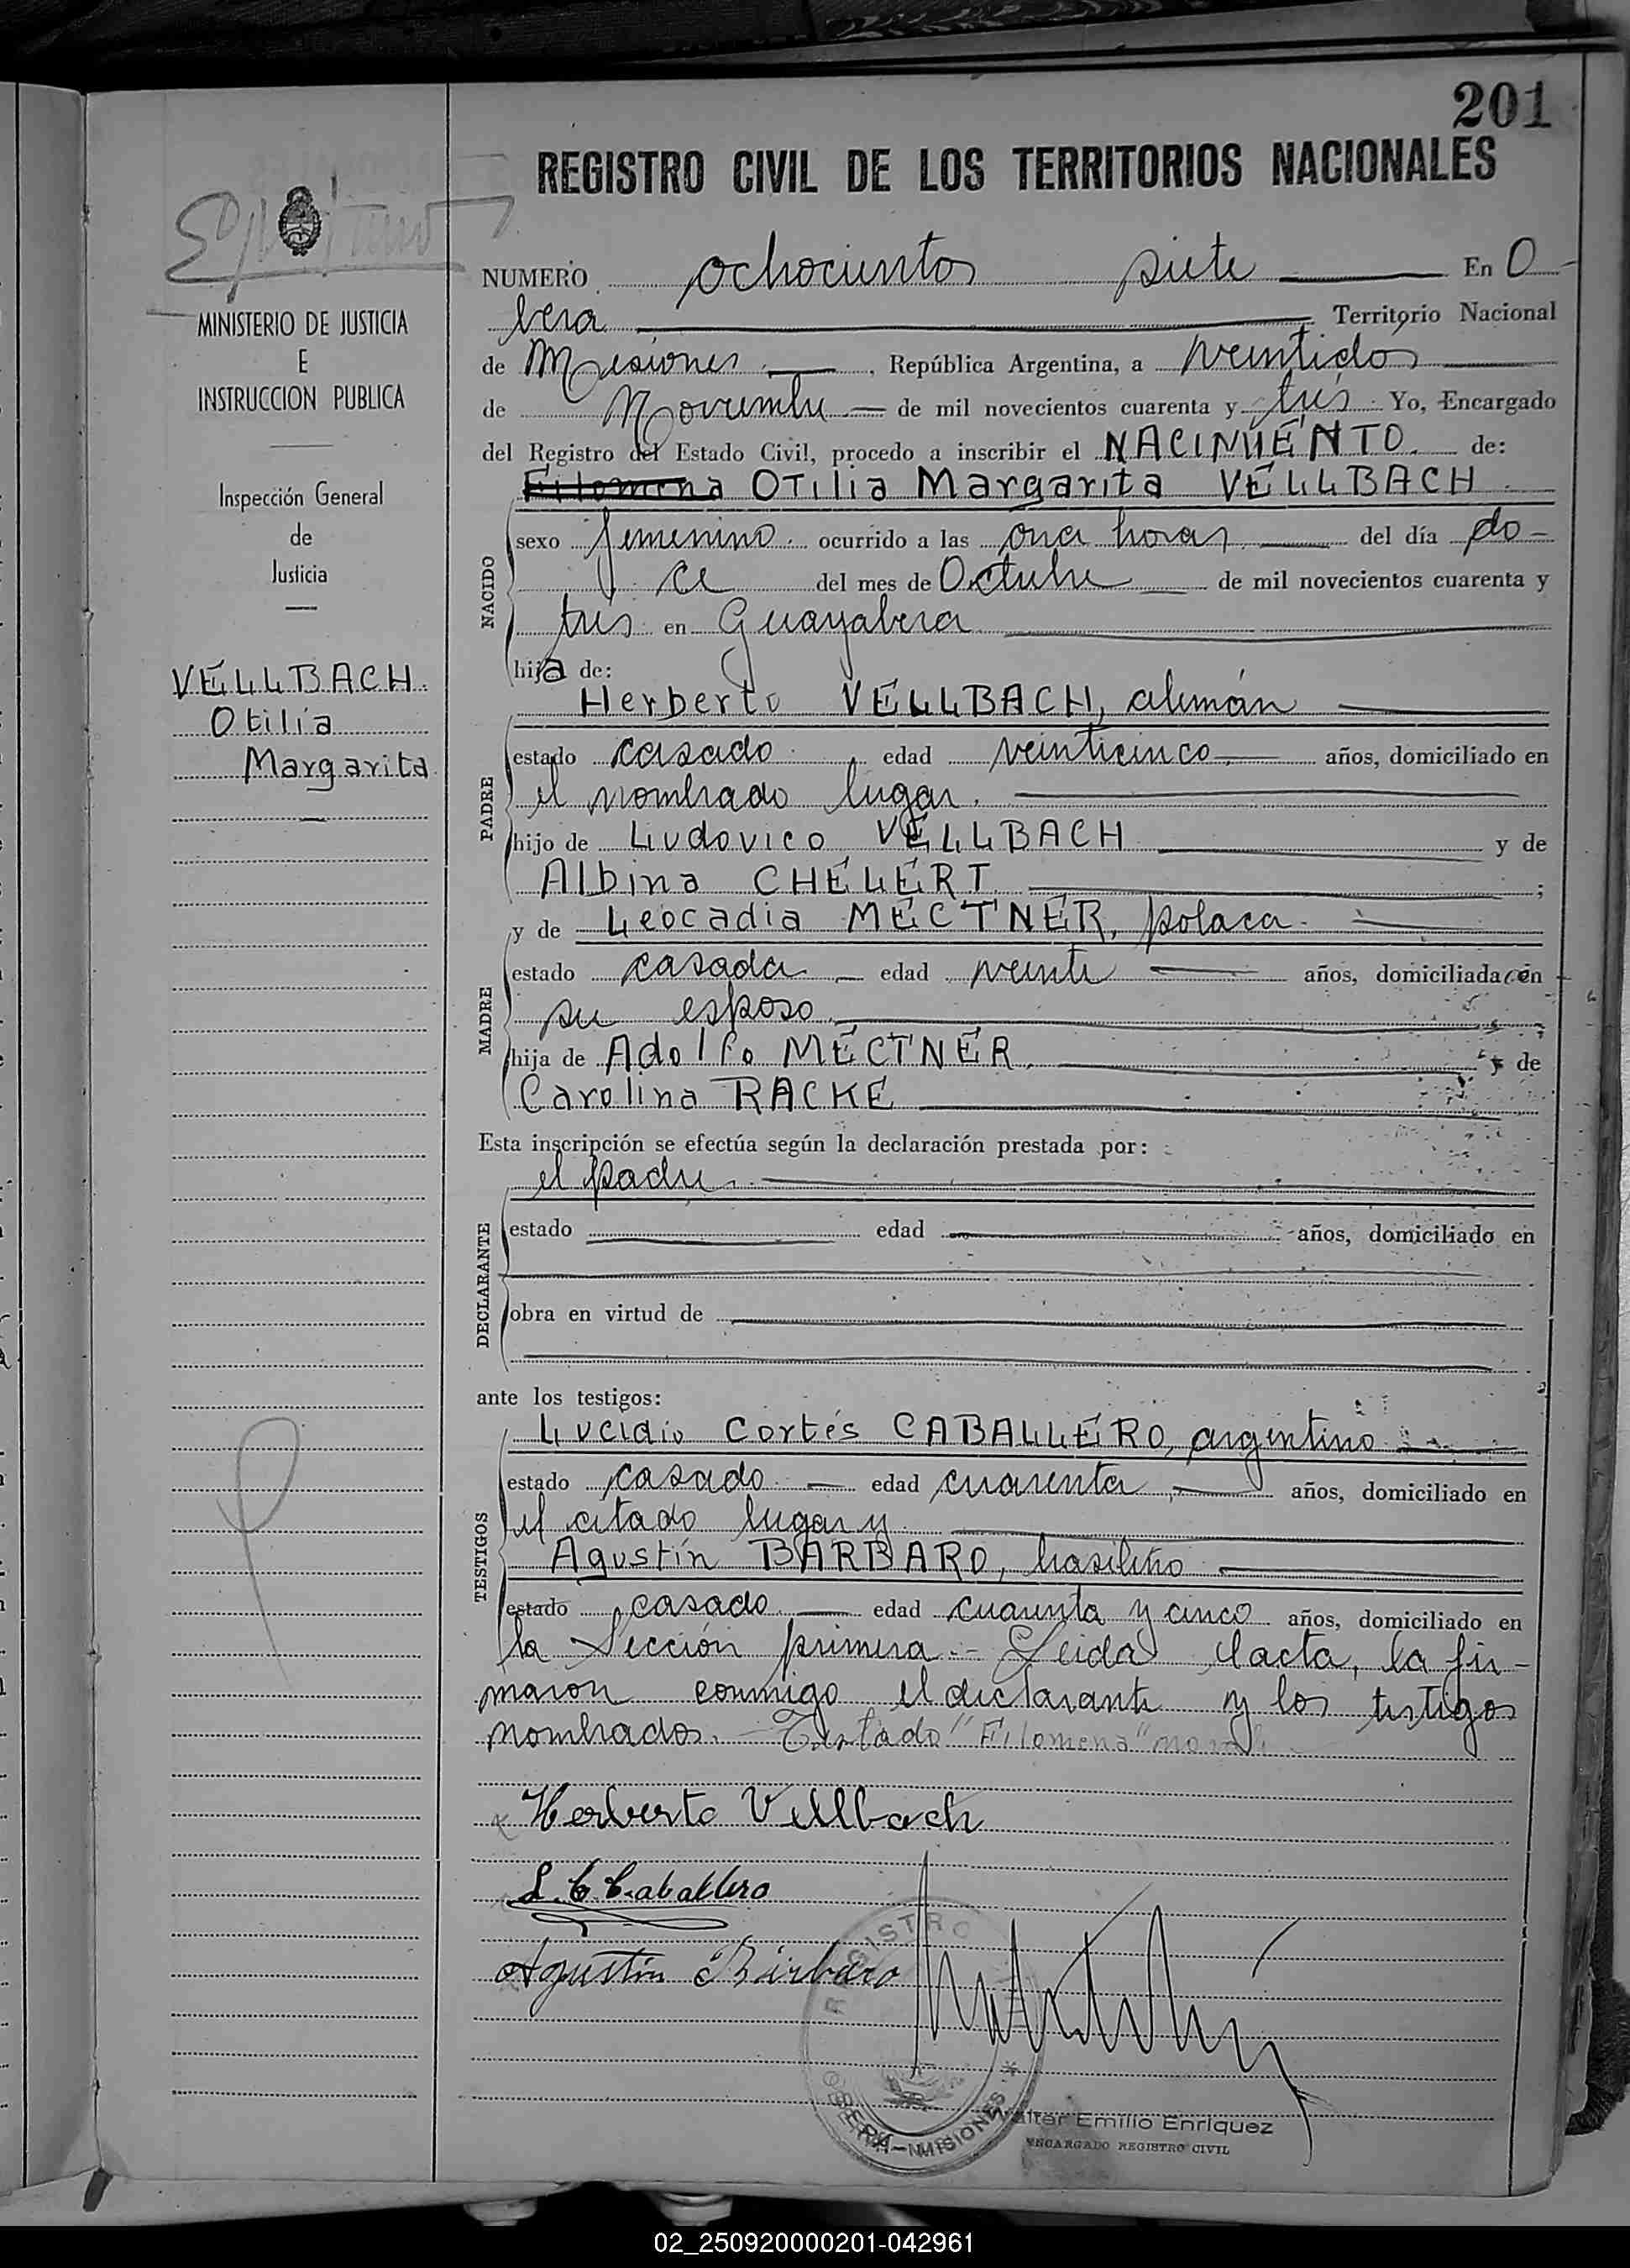 201
REGISTRO CIVIL DE LOS TERRITORIOS NACIONALES
MINISTERIO DE JUSTICIA
E
INSTRUCCION PUBLICA
Inspección General
de
Justicia
VELLBACH
Otilia
Margarita
NUMERO ochocientos siete En O-
bera Territorio Nacional
de Misiones, República Argentina, a veintidos
de Noviembre de mil novecientos cuarenta y tres Yo, Encargado
del Registro del Estado Civil, procedo a inscribir el NACIMIENTO. de:
Filomena Otilia Margarita VELLBACH
NACIDO
sexo femenino. ocurrido a las once horas del día do-
ce del mes de Octubre de mil novecientos cuarenta y
tres en Guayabera
hija de:
PADRE
Herberto VELLBACH, alemán
estado casado edad veinticinco años, domiciliado en
el nombrado lugar.
hijo de Ludovico VELLBACH y de
Albina CHELERT ;
MADRE
y de Leocadia MECTNER, polaca
estado casada edad veinte años, domiciliada en
su esposo ;
hija de Adolfo MECTNER y de
Carolina RACKE
Esta inscripción se efectúa según la declaración prestada por:
el padre.
DECLARANTE
estado edad años, domiciliado en
obra en virtud de
ante los testigos:
TESTIGOS
Lucidio Cortés CABALLERO, argentino
estado casado edad cuarenta, años, domiciliado en
el citado lugar y
Agustín BARBARO, brasileño
estado casado edad cuarenta y cinco años, domiciliado en
la Sección primera.- Leida el acta, la fir-
maron conmigo el declarante y los testigos
nombrados. Testado "Filomena" no vale
Herberto Vellbach
L. C. Caballero
Agustín Bárbaro
REGISTRO
OBERA-MISIONES
Walter Emilio Enriquez
ENCARGADO REGISTRO CIVIL
02_250920000201-042961